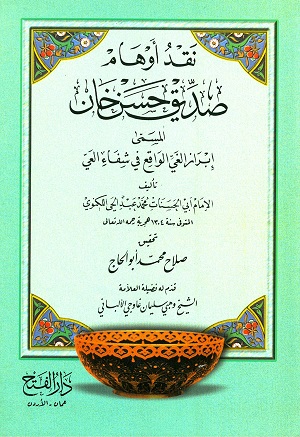 نقد أوهام
صديق حسن خان
المسمى
إبراز الغي الواقع في شفاء العي
تأليف
الإمام أبي الحسنات محمد عبد الحي اللكنوي
المتوفى سنة ١٣٠٤ هجرية رحمه الله تعالى
تحقيق
صلاح محمد أبو الحاج
قدم له فضيلة العلامة
الشيخ وهبي سليمان غاوجي الألباني
دار الفتح
عمان - الأردن